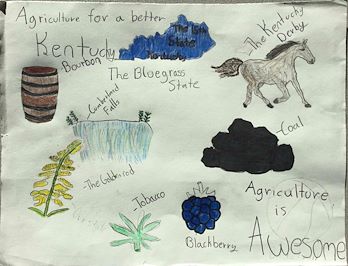 Agriculture for a better
Kentucky
The 15th
State
Kentucky
-The Kentucky
Derby
Bourbon
The Bluegrass
State
-Cumberland
Falls
-Coal
-The Goldenrod
-Tobacco
Blackberry
Agriculture
is
Awesome